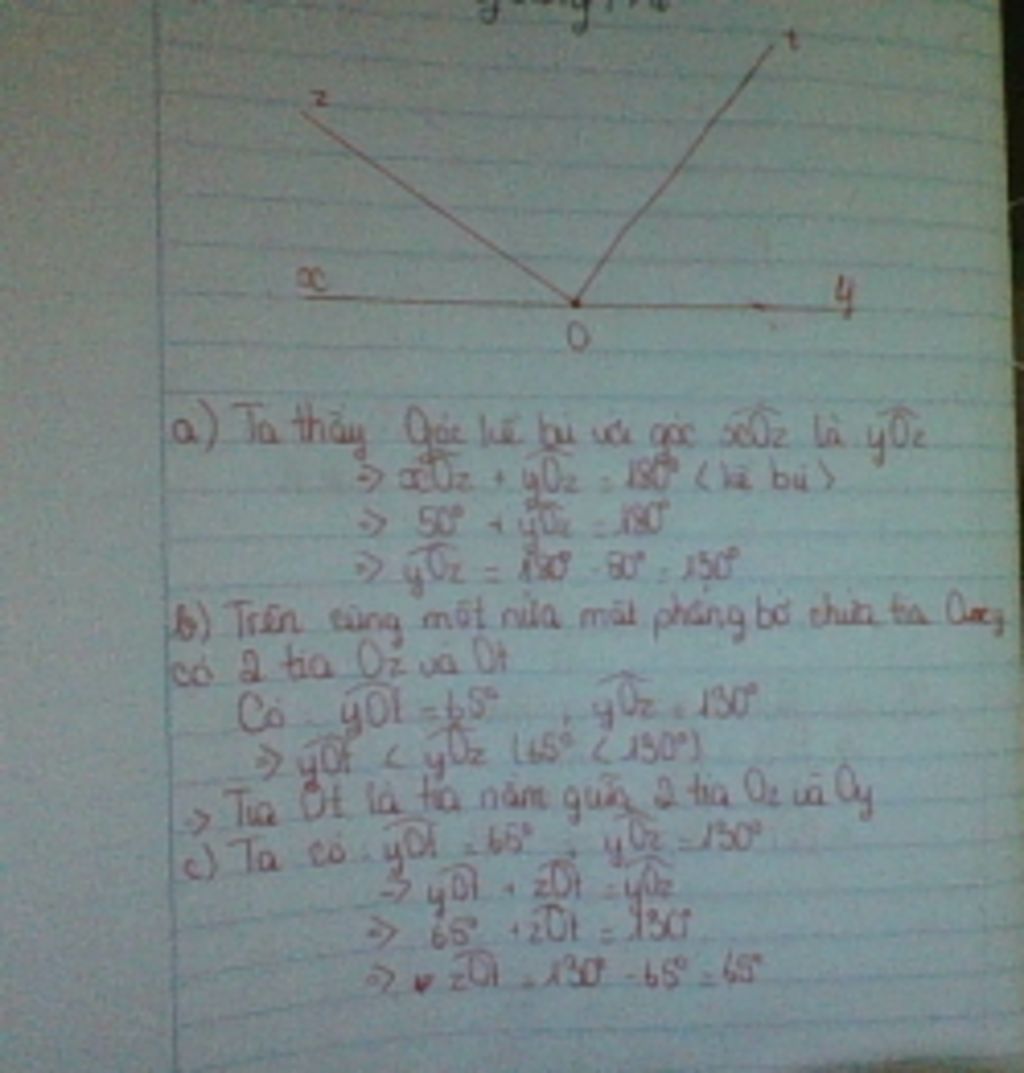 z
t
x
y
O
a) Ta thấy Góc kề bù với góc xOz là yOz
=> xOz + yOz = 180° (kề bù)
=> 50° + yOz = 180°
=> yOz = 180° - 50° = 130°
b) Trên cùng một nửa mặt phẳng bờ chứa tia
có 2 tia Oz và Ot
Có yOt = 65° , yOz = 130°
=> yOt < yOz (65° < 130°)
=> Tia Ot là tia nằm giữa 2 tia Oz và Oy
c) Ta có yOt = 65° , yOz = 130°
=> yOt + zOt = yOz
=> 65° + zOt = 130°
=> zOt = 130° - 65° = 65°